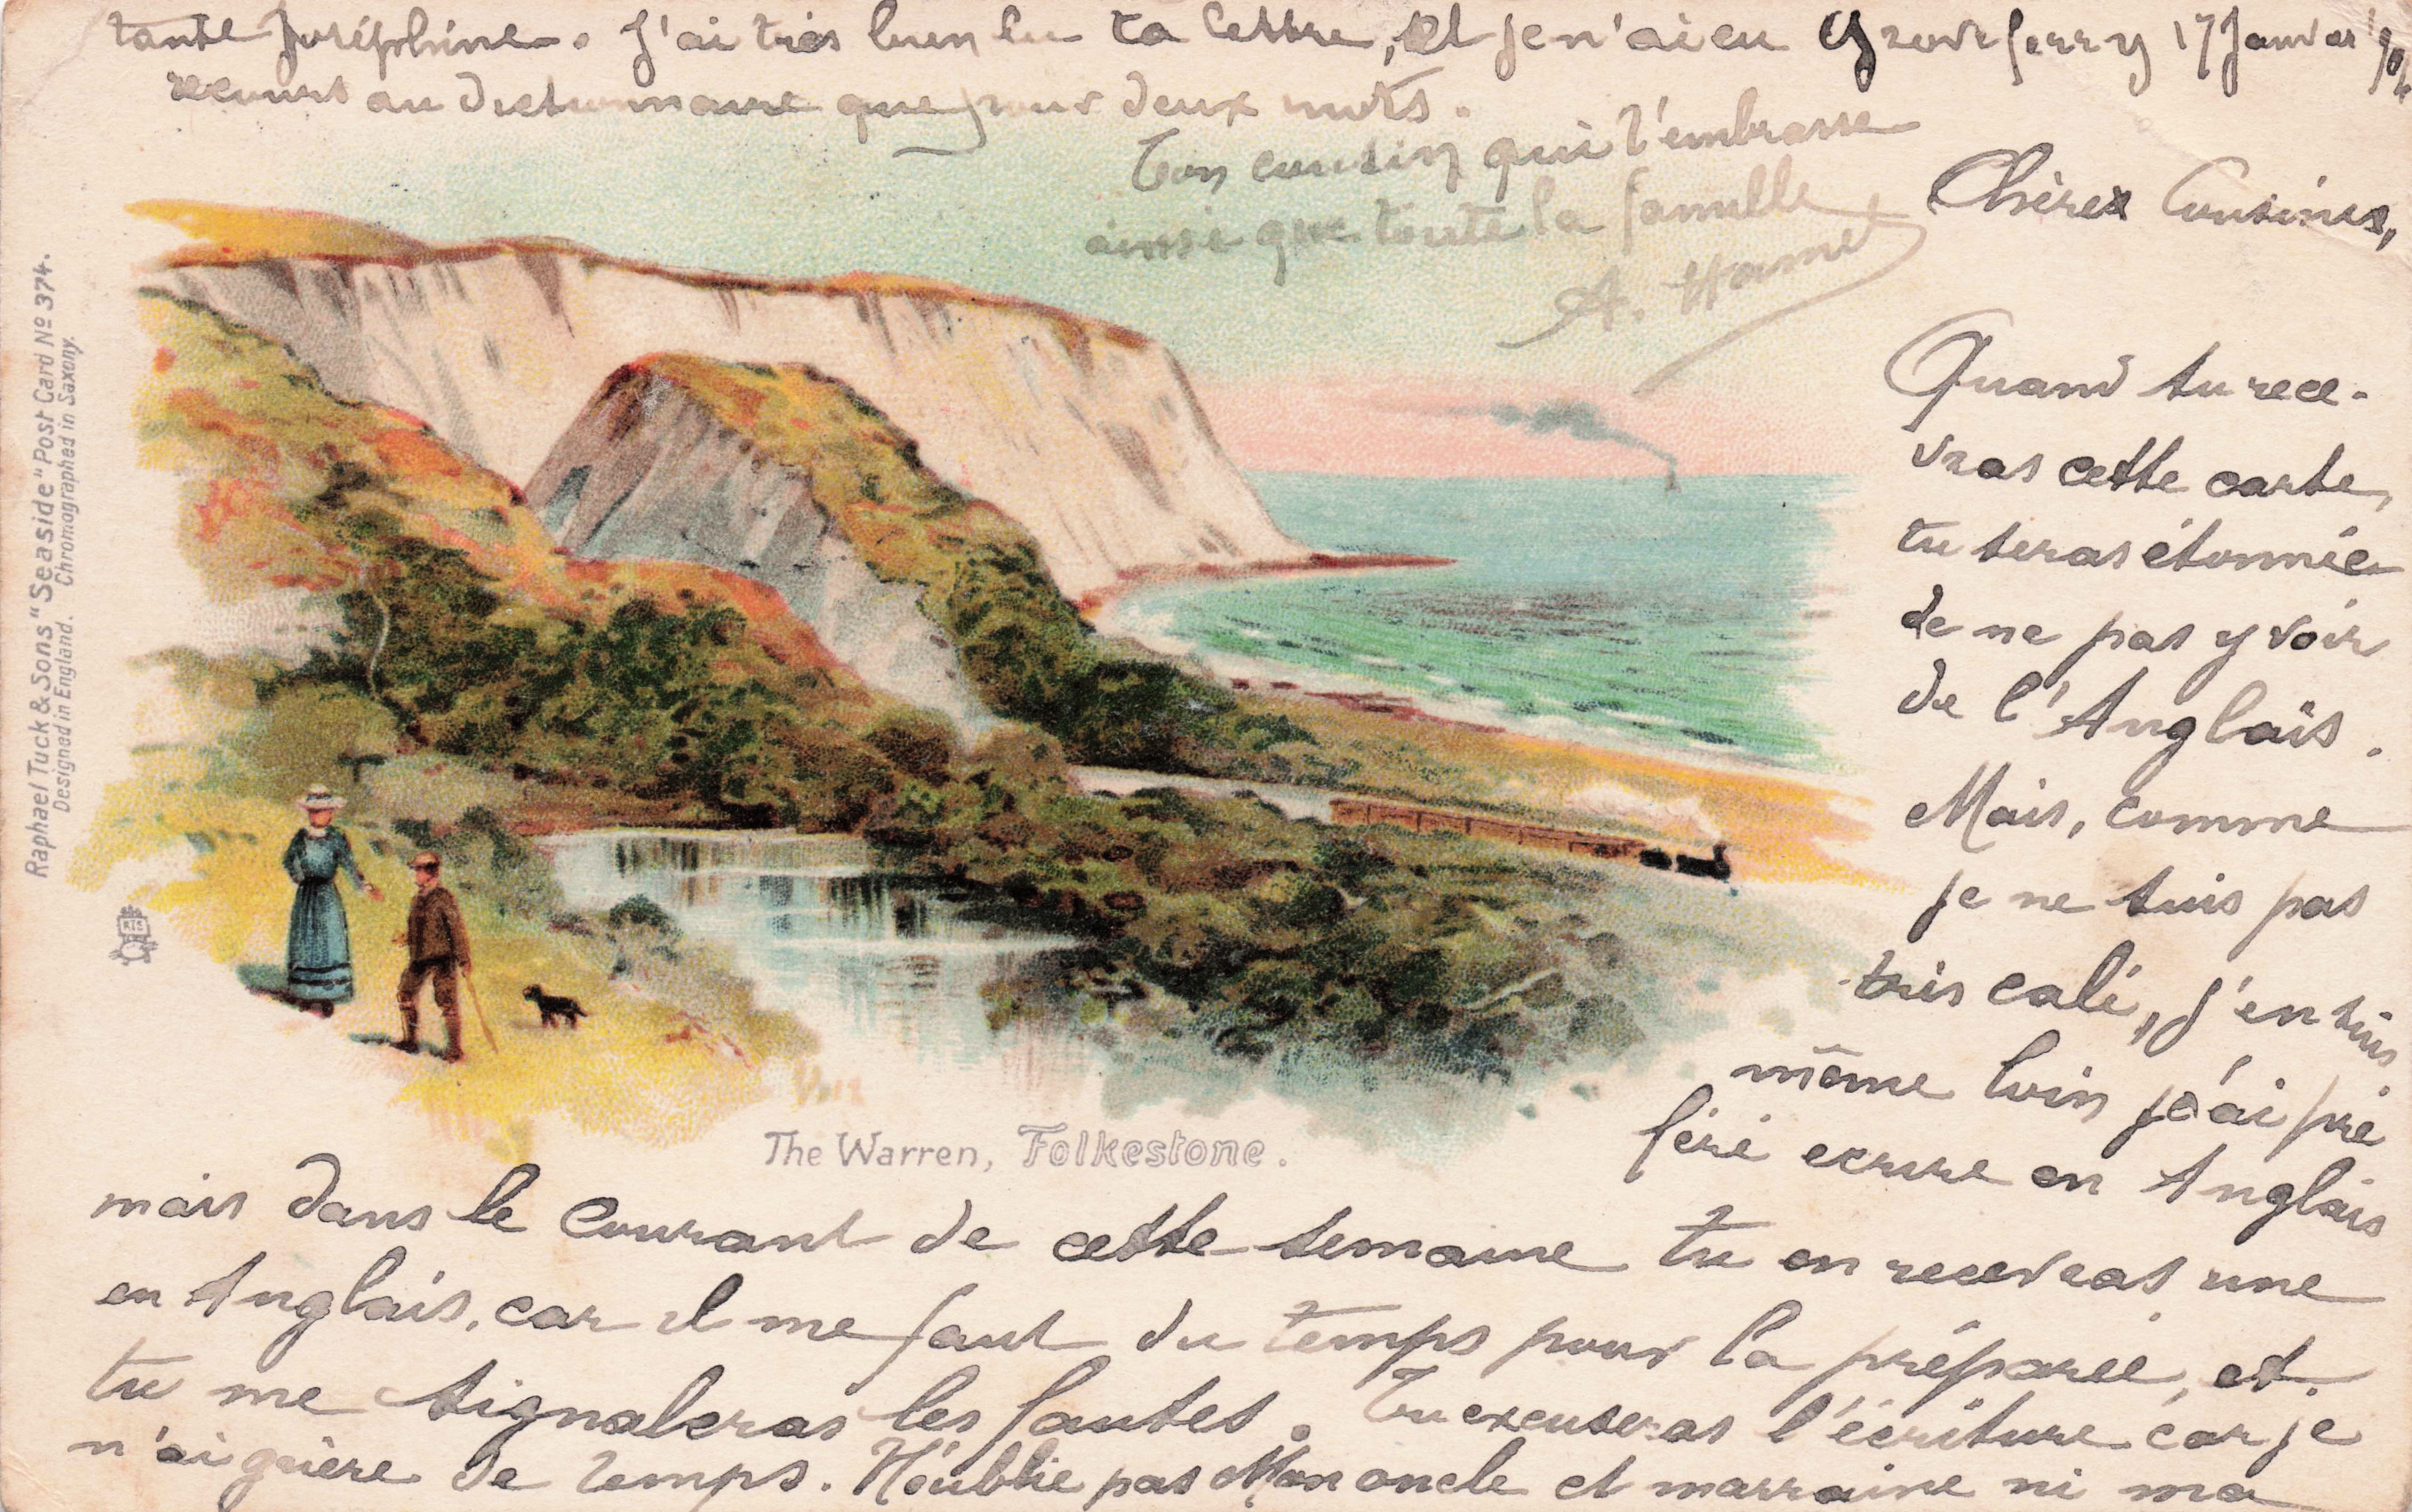 Groveferry 17 Janvier 1904
Chères Cousines,
Quand tu rece-
vras cette carte,
tu seras étonnée
de ne pas y voir
de l'Anglais.
Mais, comme
je ne suis pas
très calé, j'en suis
même loin j'ai pré
féré ecrire en Anglais
mais dans le courant de cette semaine tu en recevras une
en Anglais, car il me faut du temps pour la préparée, et
tu me signaleras les fautes. Tu excuseras l'écriture car je
n'ai guère de temps. N'oublie pas Mon oncle et marraine ni ma
tante Joséphine. J'ai très bien lu ta lettre, et je n'ai eu
recours au dictionnaire que pour deux mots.
Ton cousin qui t'embrasse
ainsi que toute la famille
A. Hamel
The Warren, Folkestone.
Raphael Tuck & Sons "Seaside" Post Card No 374.
Designed in England. Chromographed in Saxony.